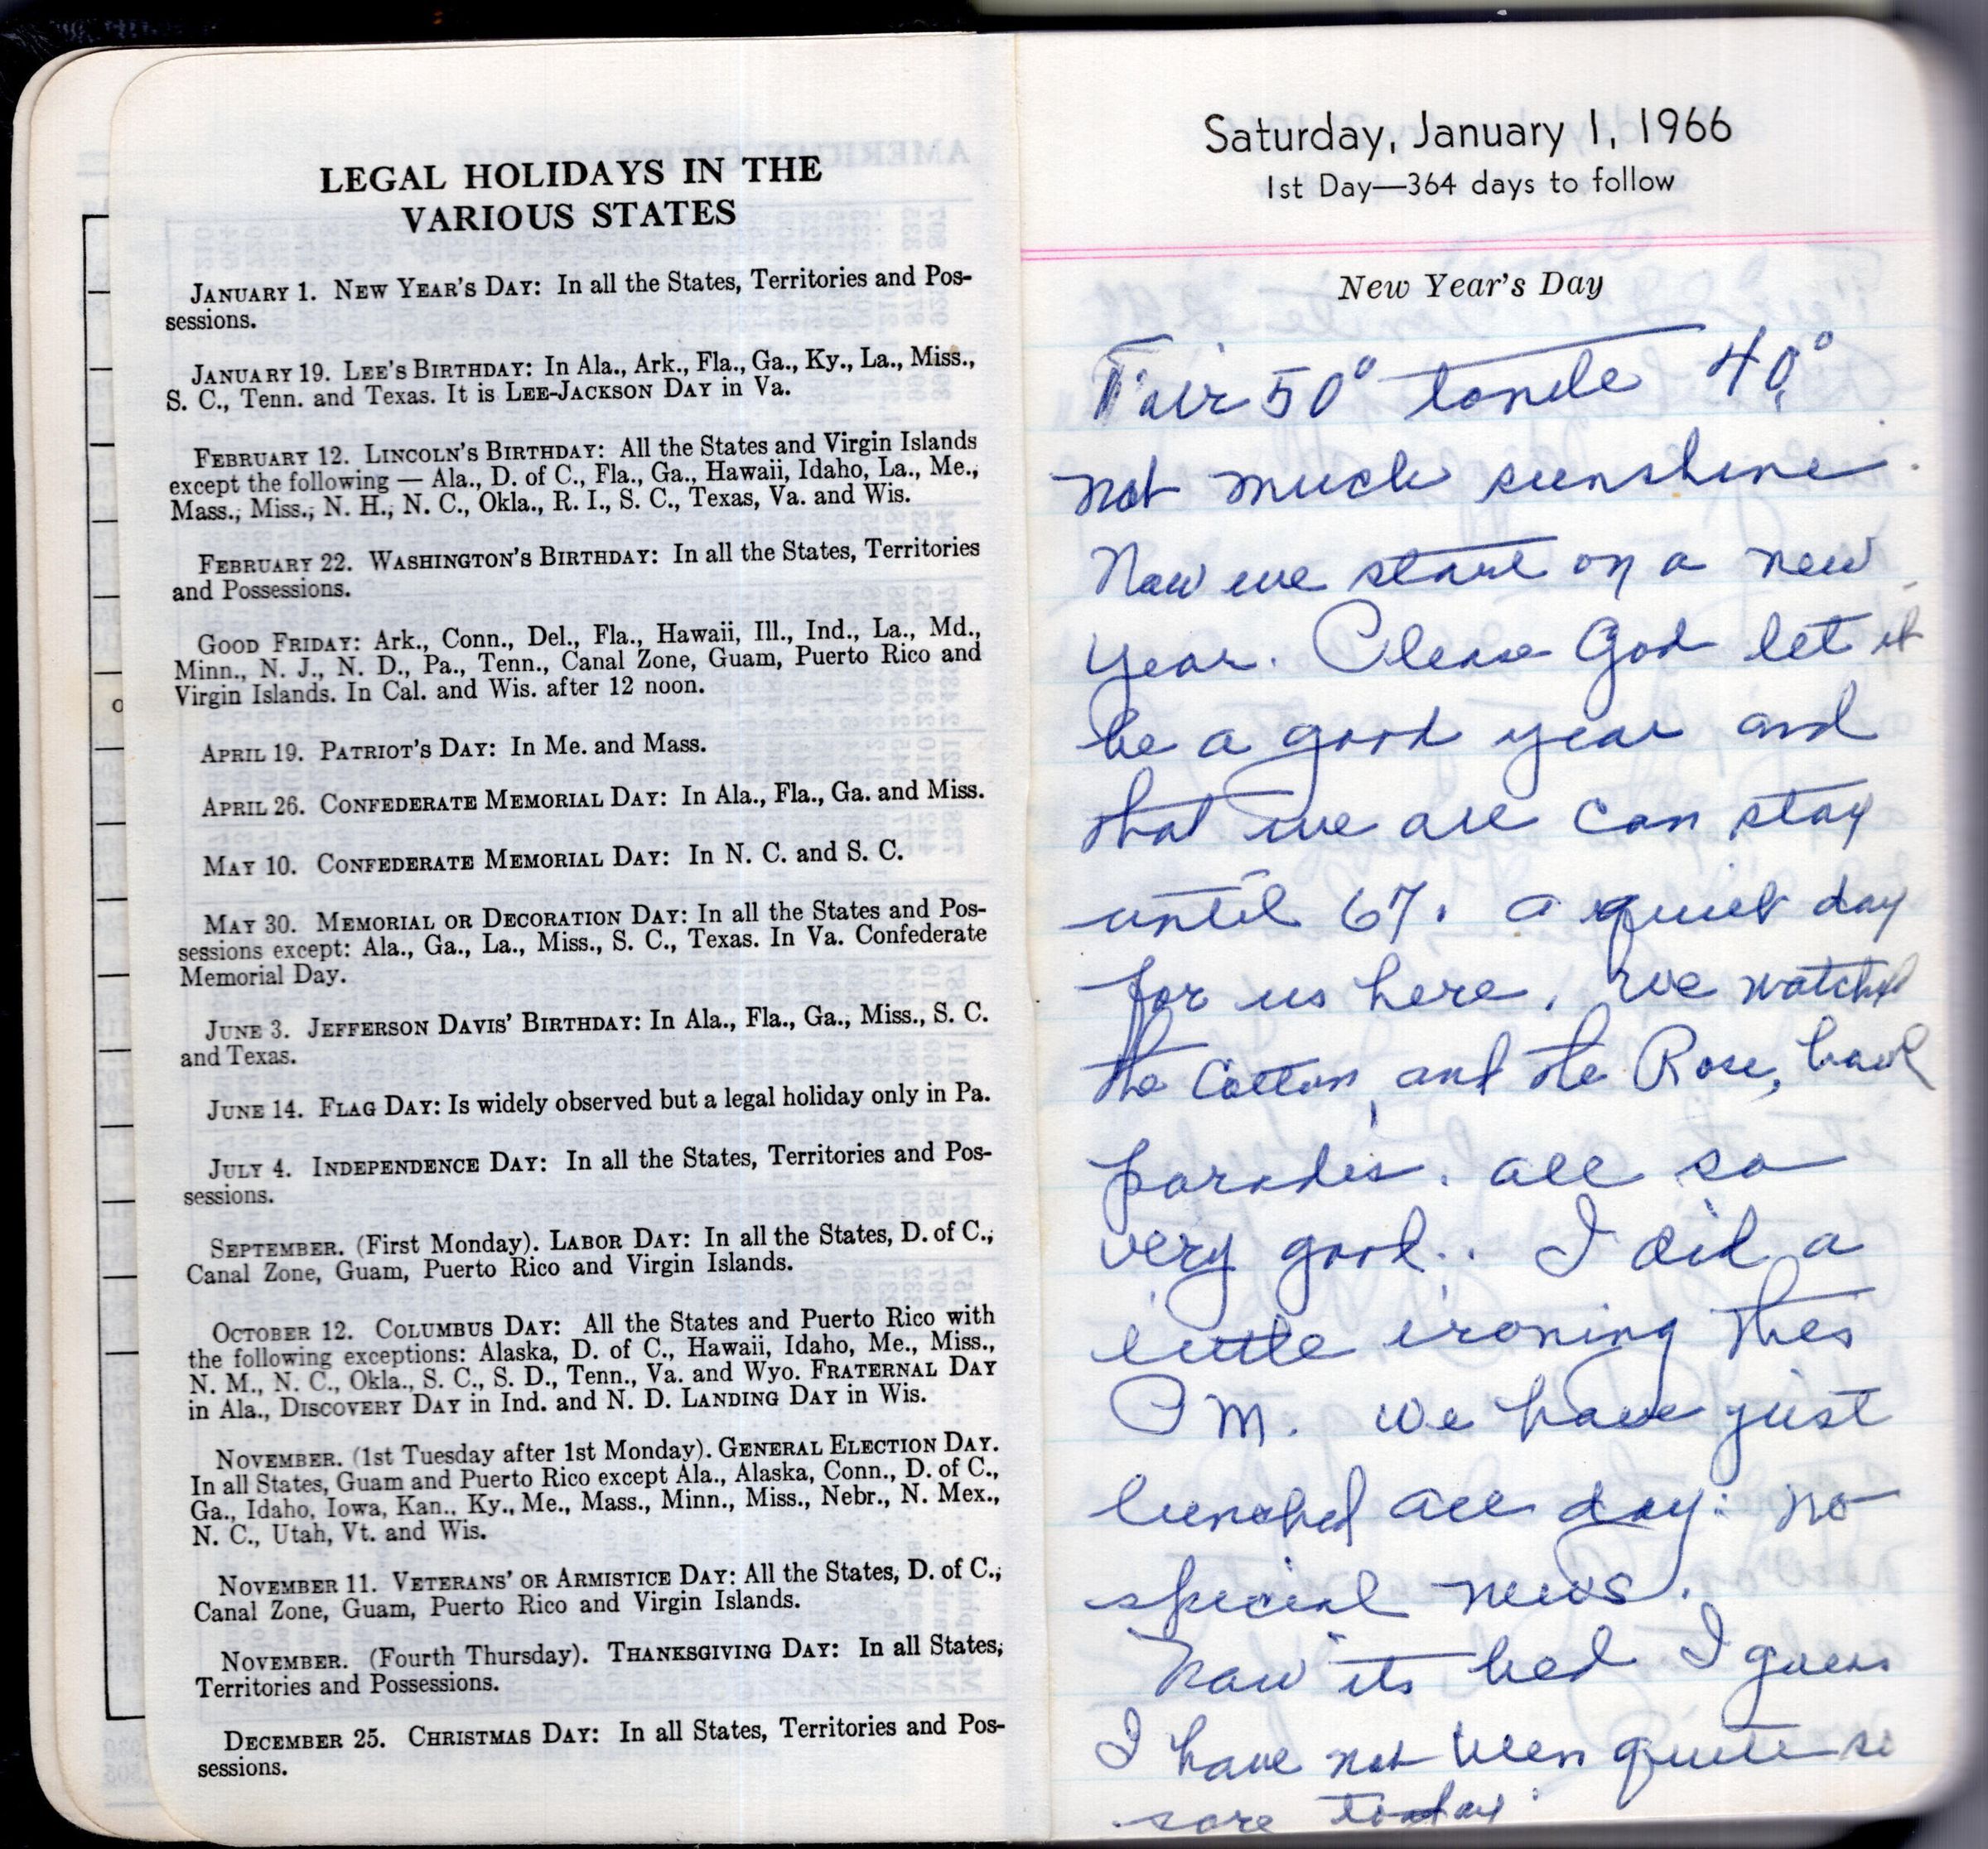 LEGAL HOLIDAYS IN THE
VARIOUS STATES
JANUARY 1. NEW YEAR'S DAY: In all the States, Territories and Pos-
sessions.
JANUARY 19. LEE'S BIRTHDAY: In Ala., Ark., Fla., Ga., Ky., La., Miss.,
S. C., Tenn. and Texas. It is LEE-JACKSON DAY in Va.
FEBRUARY 12. LINCOLN'S BIRTHDAY: All the States and Virgin Islands
except the following — Ala., D. of C., Fla., Ga., Hawaii, Idaho, La., Me.,
Mass., Miss., N. H., N. C., Okla., R. I., S. C., Texas, Va. and Wis.
FEBRUARY 22. WASHINGTON'S BIRTHDAY: In all the States, Territories
and Possessions.
GOOD FRIDAY: Ark., Conn., Del., Fla., Hawaii, Ill., Ind., La., Md.,
Minn., N. J., N. D., Pa., Tenn., Canal Zone, Guam, Puerto Rico and
Virgin Islands. In Cal. and Wis. after 12 noon.
APRIL 19. PATRIOT'S DAY: In Me. and Mass.
APRIL 26. CONFEDERATE MEMORIAL DAY: In Ala., Fla., Ga. and Miss.
MAY 10. CONFEDERATE MEMORIAL DAY: In N. C. and S. C.
MAY 30. MEMORIAL OR DECORATION DAY: In all the States and Pos-
sessions except: Ala., Ga., La., Miss., S. C., Texas. In Va. Confederate
Memorial Day.
JUNE 3. JEFFERSON DAVIS' BIRTHDAY: In Ala., Fla., Ga., Miss., S. C.
and Texas.
JUNE 14. FLAG DAY: Is widely observed but a legal holiday only in Pa.
JULY 4. INDEPENDENCE DAY: In all the States, Territories and Pos-
sessions.
SEPTEMBER. (First Monday). LABOR DAY: In all the States, D. of C.,
Canal Zone, Guam, Puerto Rico and Virgin Islands.
OCTOBER 12. COLUMBUS DAY: All the States and Puerto Rico with
the following exceptions: Alaska, D. of C., Hawaii, Idaho, Me., Miss.,
N. M., N. C., Okla., S. C., S. D., Tenn., Va. and Wyo. FRATERNAL DAY
in Ala., DISCOVERY DAY in Ind. and N. D. LANDING DAY in Wis.
NOVEMBER. (1st Tuesday after 1st Monday). GENERAL ELECTION DAY.
In all States, Guam and Puerto Rico except Ala., Alaska, Conn., D. of C.,
Ga., Idaho, Iowa, Kan., Ky., Me., Mass., Minn., Miss., Nebr., N. Mex.,
N. C., Utah, Vt. and Wis.
NOVEMBER 11. VETERANS' OR ARMISTICE DAY: All the States, D. of C.,
Canal Zone, Guam, Puerto Rico and Virgin Islands.
NOVEMBER. (Fourth Thursday). THANKSGIVING DAY: In all States,
Territories and Possessions.
DECEMBER 25. CHRISTMAS DAY: In all States, Territories and Pos-
sessions.
Saturday, January 1, 1966
1st Day—364 days to follow
New Year's Day
Fair 50° tonite 40°
not much sunshine.
Now we start on a new
year. Please God let it
be a good year and
that we all can stay
until 67. a quiet day
for us here. we watched
the Cotton, and the Rose, bowl
parades. all so
very good.. I did a
little ironing this
P M. we have just
lunched all day. no
special news.
Now its bed I guess
I have not been quite so
sore today